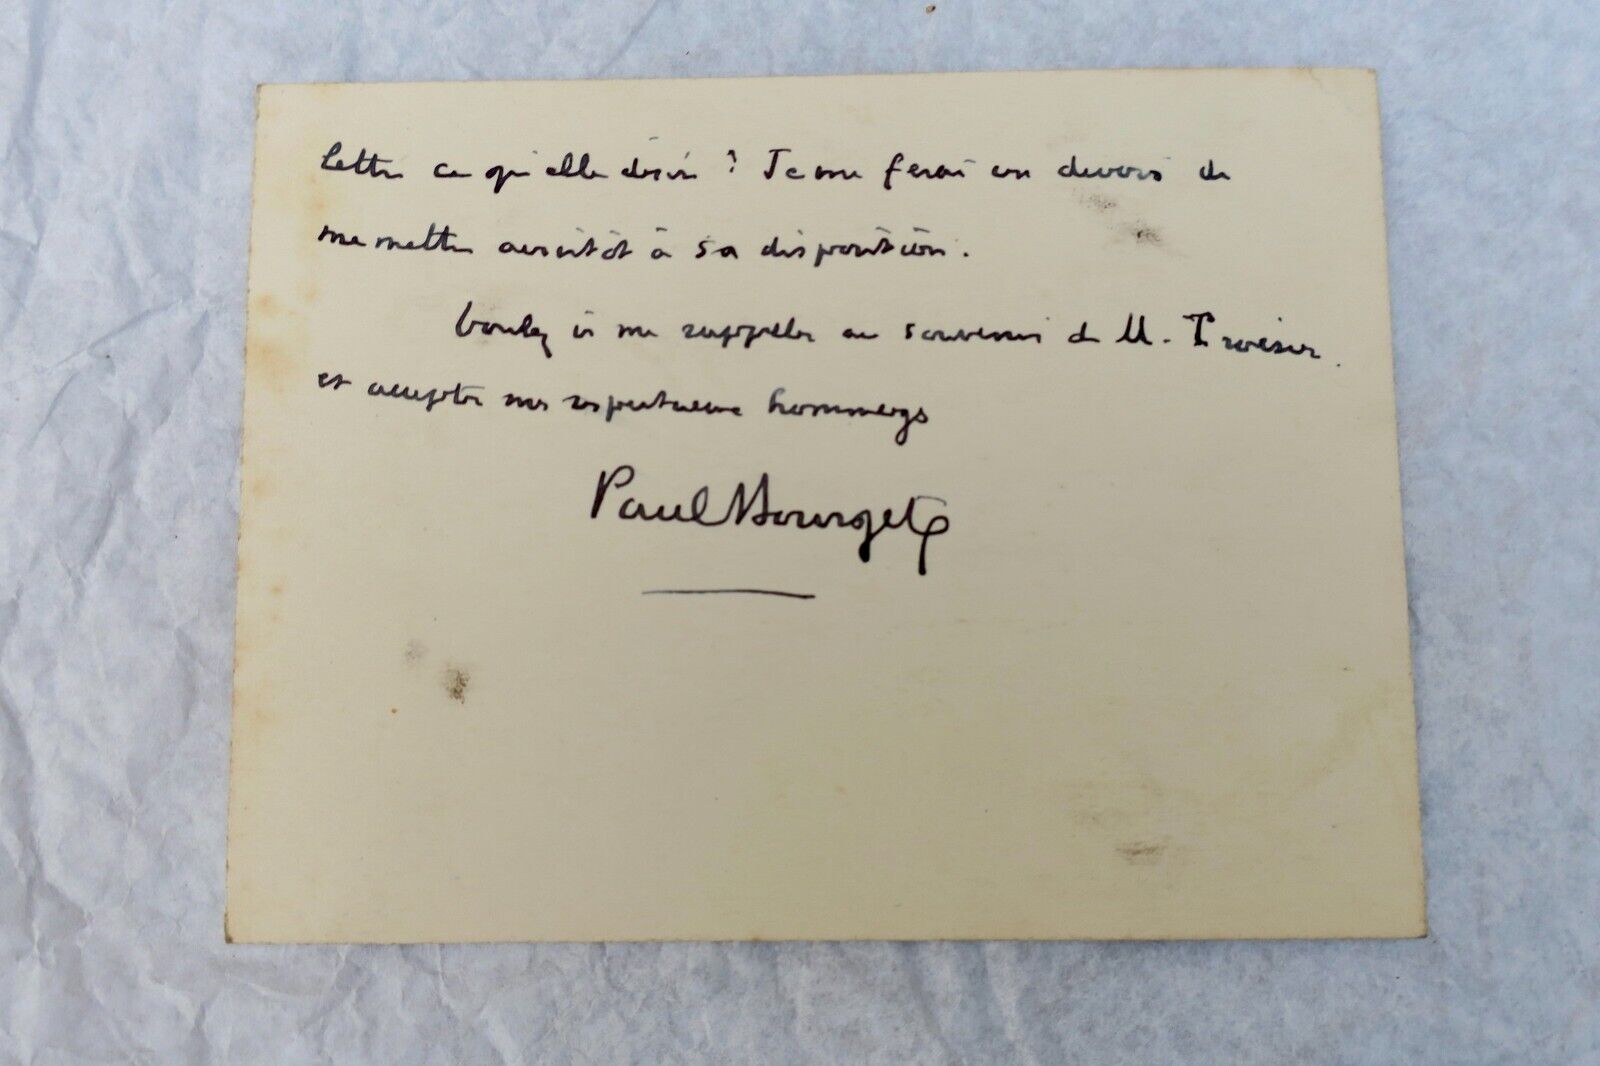 lettre ce qu'elle désire ? Je me ferai un devoir de
me mettre aussitôt à sa disposition.
Voulez à me rappeler au souvenir de M. Troisier
et accepter mes respectueux hommages
Paul Bourget